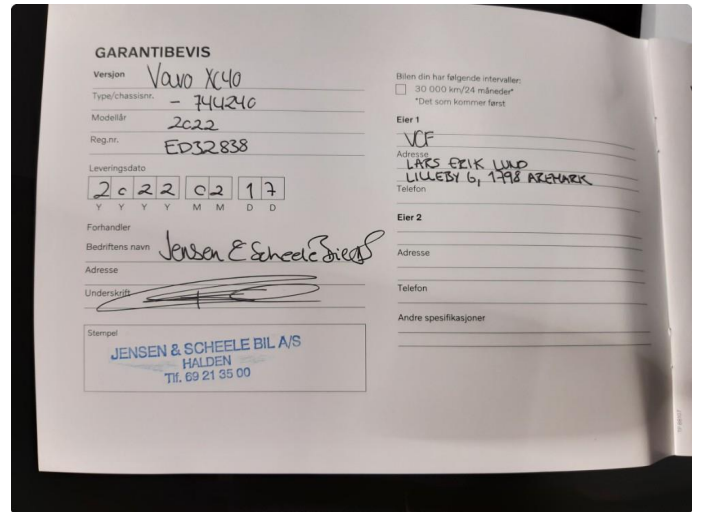 GARANTIBEVIS
Versjon Volvo XC40
Type/chassisnr. - 744240
Modellår 2022
Reg.nr. ED32838
Leveringsdato
2022 02 17
Y Y Y Y M M D D
Forhandler
Bedriftens navn Jensen & Scheele Bil AS
Adresse
Underskrift
Stempel
JENSEN & SCHEELE BIL A/S
HALDEN
Tlf. 69 21 35 00
Bilen din har følgende intervaller:
30 000 km/24 måneder*
*Det som kommer først
Eier 1
VCF
Adresse
LARS ERIK LUND
LILLEBY 6, 1798 AREMARK
Telefon
Eier 2
Adresse
Telefon
Andre spesifikasjoner